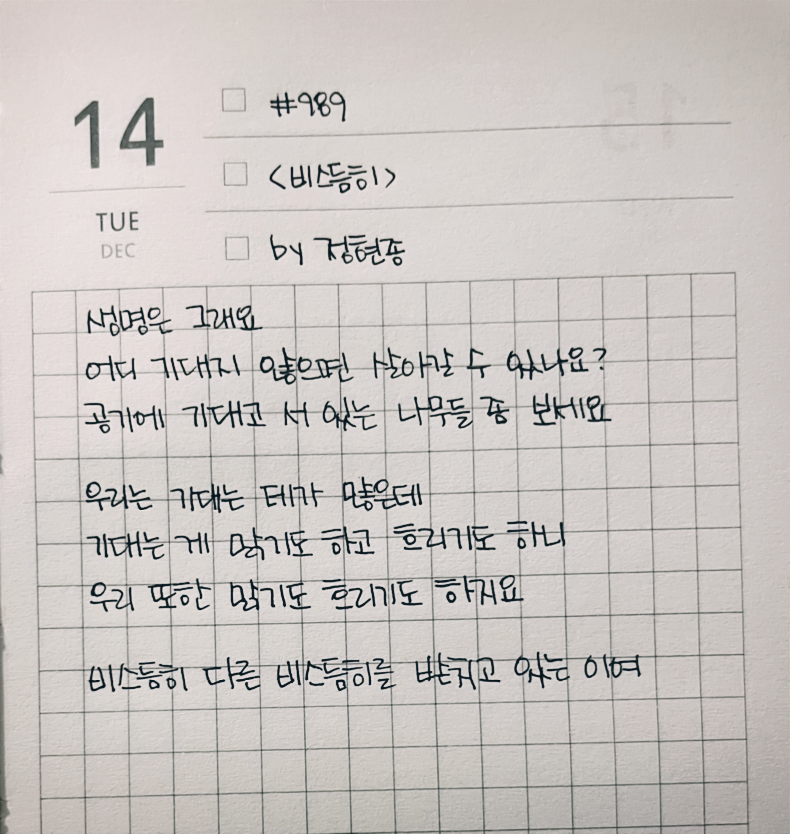 14
TUE
DEC
#989
<비스듬히>
by 정현종
생명은 그래요
어디 기대지 않으면 살아갈 수 있나요?
공기에 기대고 서 있는 나무들 좀 보세요
우리는 기대는 데가 많은데
기대는 게 맑기도 하고 흐리기도 하니
우리 또한 맑기도 흐리기도 하지요
비스듬히 다른 비스듬히를 받치고 있는 이여